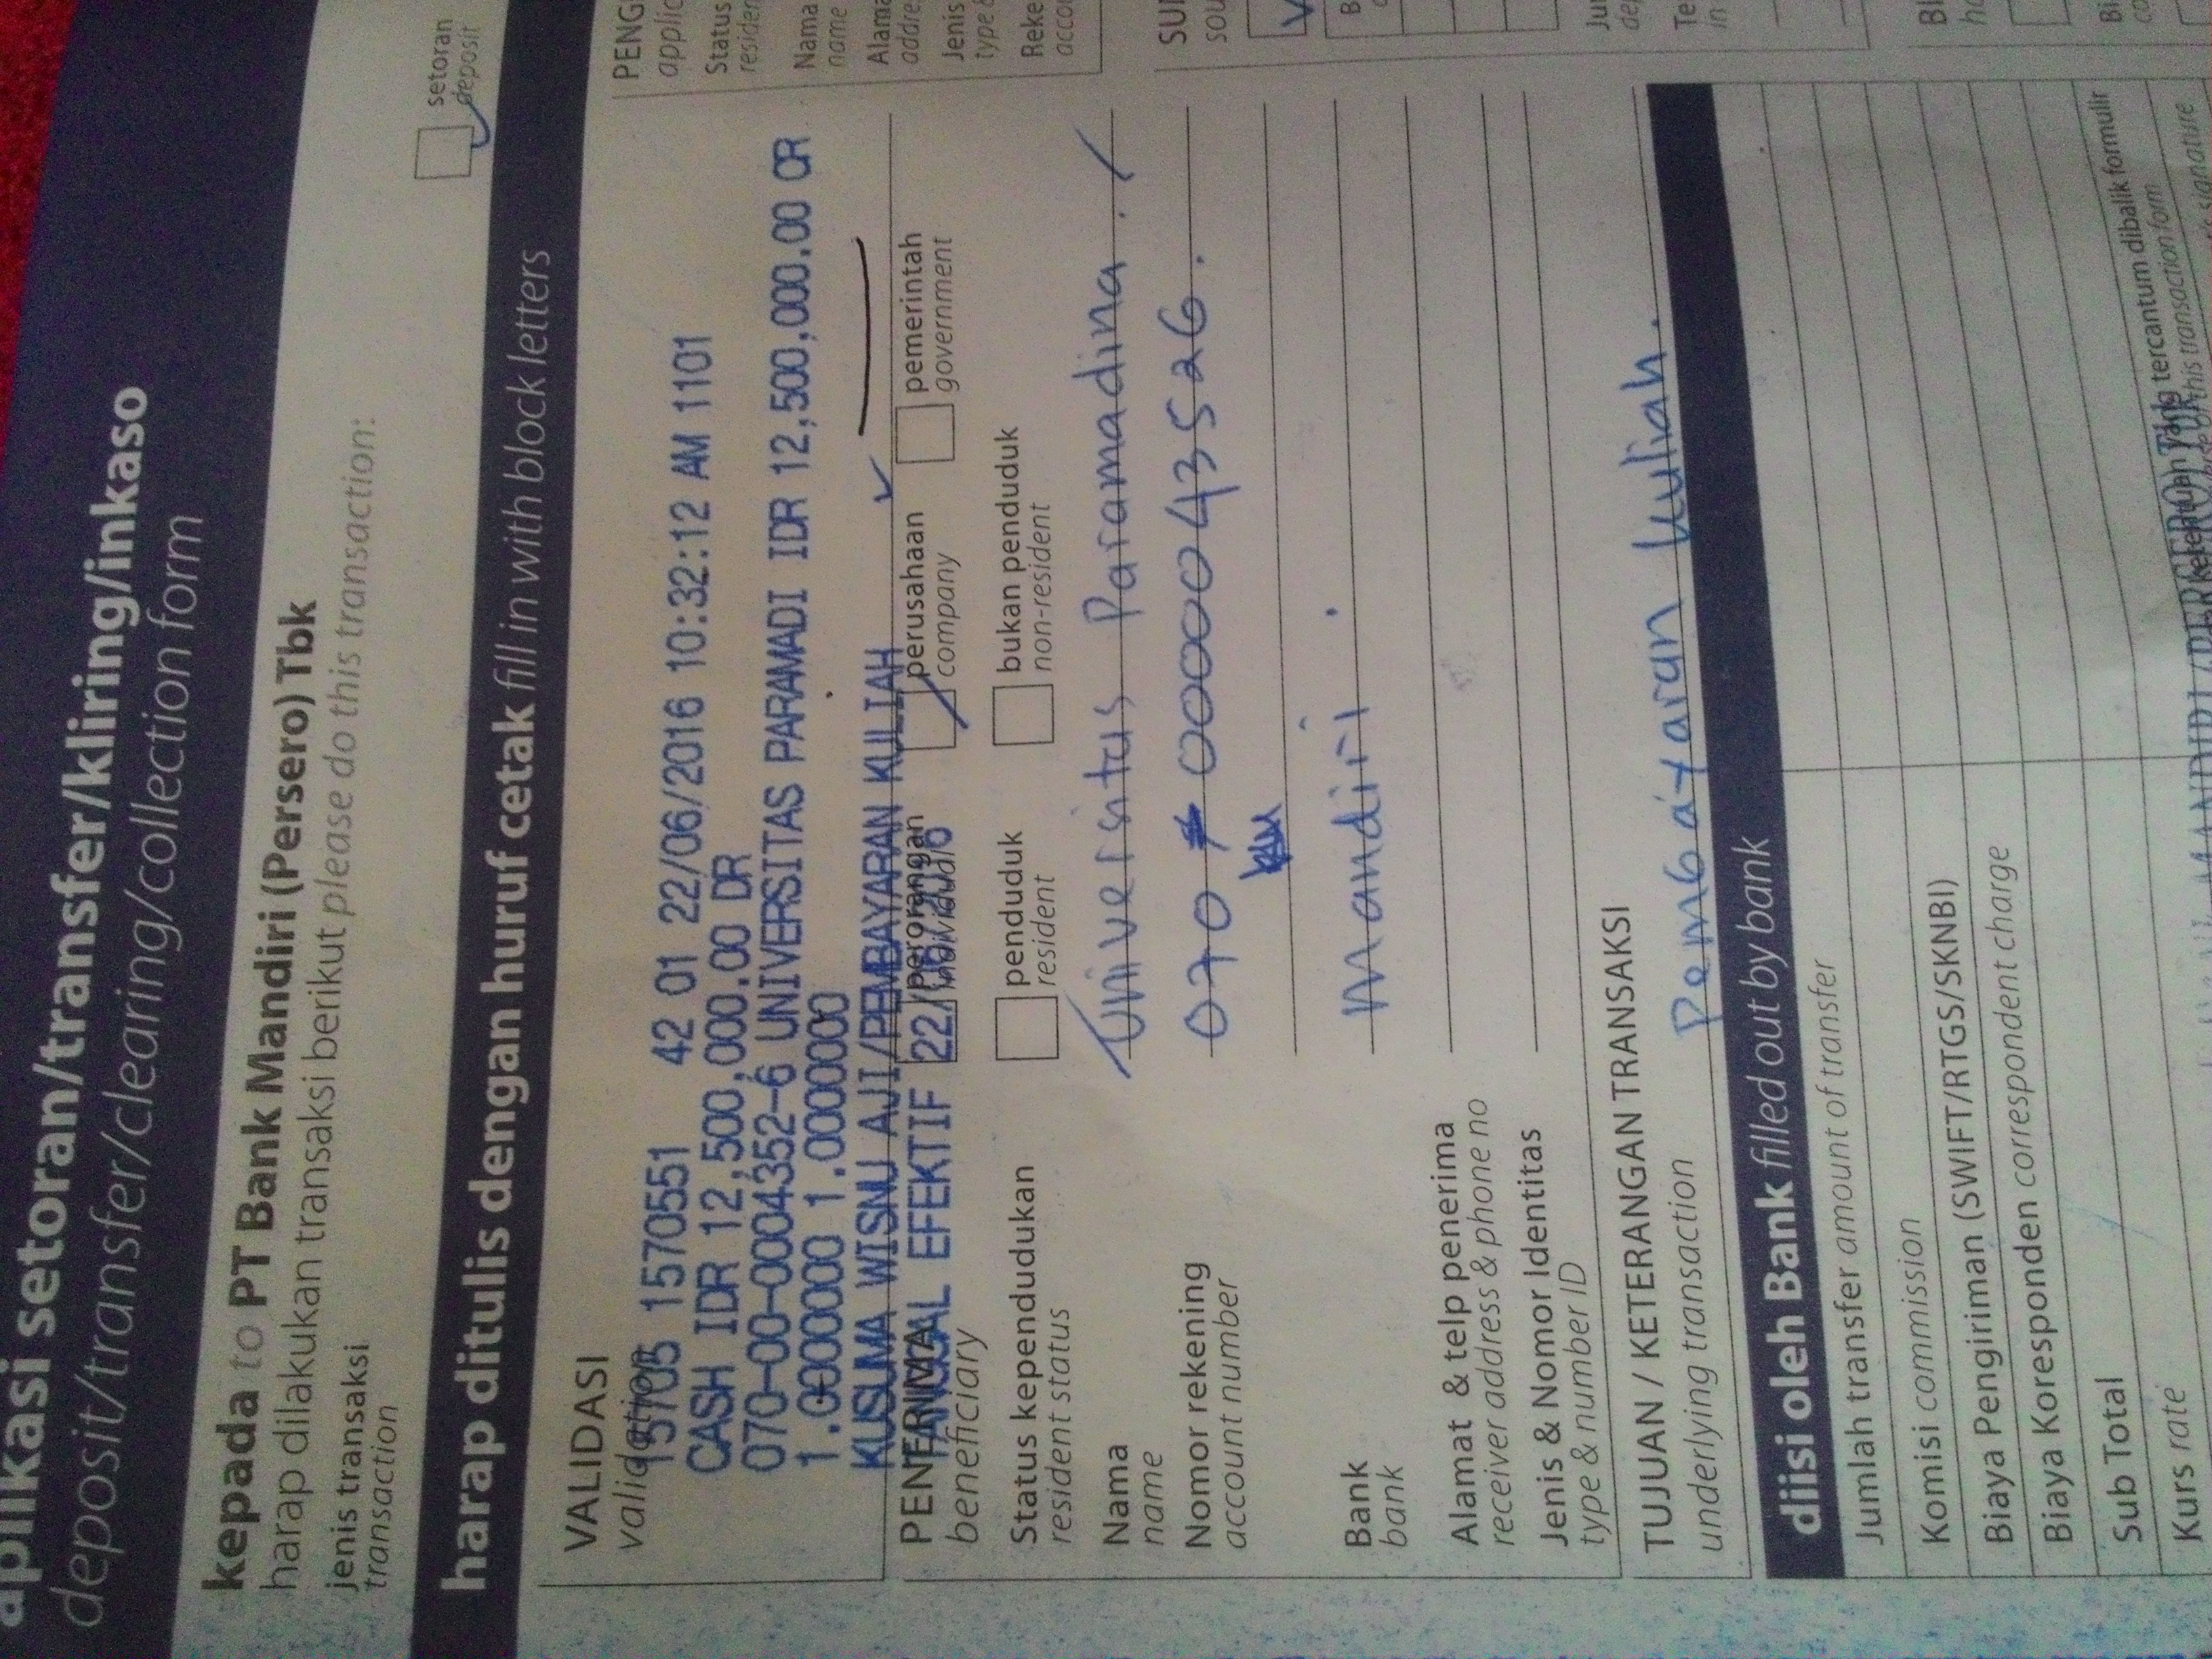 aplikasi setoran/transfer/kliring/inkaso
deposit/transfer/clearing/collection form
kepada to PT Bank Mandiri (Persero) Tbk
harap dilakukan transaksi berikut please do this transaction:
jenis transaksi
transaction
setoran
deposit
harap ditulis dengan huruf cetak fill in with block letters
VALIDASI
validation
15705 1570551 42 01 22/06/2016 10:32:12 AM 1101
CASH IDR 12,500,000.00 DR
070-00-0004352-6 UNIVERSITAS PARAMADI IDR 12,500,000.00 CR
1.0000000 1.0000000
KUSUMA WISNU AJI/PEMBAYARAN KULIAH
TANGGAL EFEKTIF 22/06/2016
PENERIMA
beneficiary
perorangan
individual
perusahaan
company
pemerintah
government
Status kependudukan
resident status
penduduk
resident
bukan penduduk
non-resident
Nama
name
Universitas Paramadina.
Nomor rekening
account number
070 0000043526.
Bank
bank
Mandiri
Alamat & telp penerima
receiver address & phone no
Jenis & Nomor Identitas
type & number ID
TUJUAN / KETERANGAN TRANSAKSI
underlying transaction
Pembayaran kuliah.
diisi oleh Bank filled out by bank
Jumlah transfer amount of transfer
Komisi commission
Biaya Pengiriman (SWIFT/RTGS/SKNBI)
Biaya Koresponden correspondent charge
Sub Total
Kurs rate
yang tercantum dibalik formulir
of this transaction form
signature
MANDIRI (PERSERO) Tbk
PENG
applic
Status
residen
Nama
name
Alama
addre
Jenis
type &
Reke
acco
SU
sou